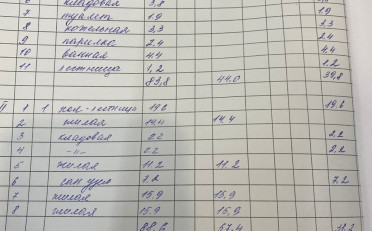 6 кладовая 3,8
7 туалет 1.9 1.9
8 котельная 3,3 3.3
9 парилка 2.4 2.4
10 ванная 4.4 4.4
11 лестница 1,2 1.2
83,8 44.0 39,8
II 1 1 лестница 19.6
2 жилая 14.4 14,4
3 кладовая 2.2 2.2
4 -"- 2.2 2.2
5 жилая 11.2 11,2
6 сан узел 7.2 7.2
7 жилая 15,9 15,9
8 жилая 15.9 15,9
88.6 57.4